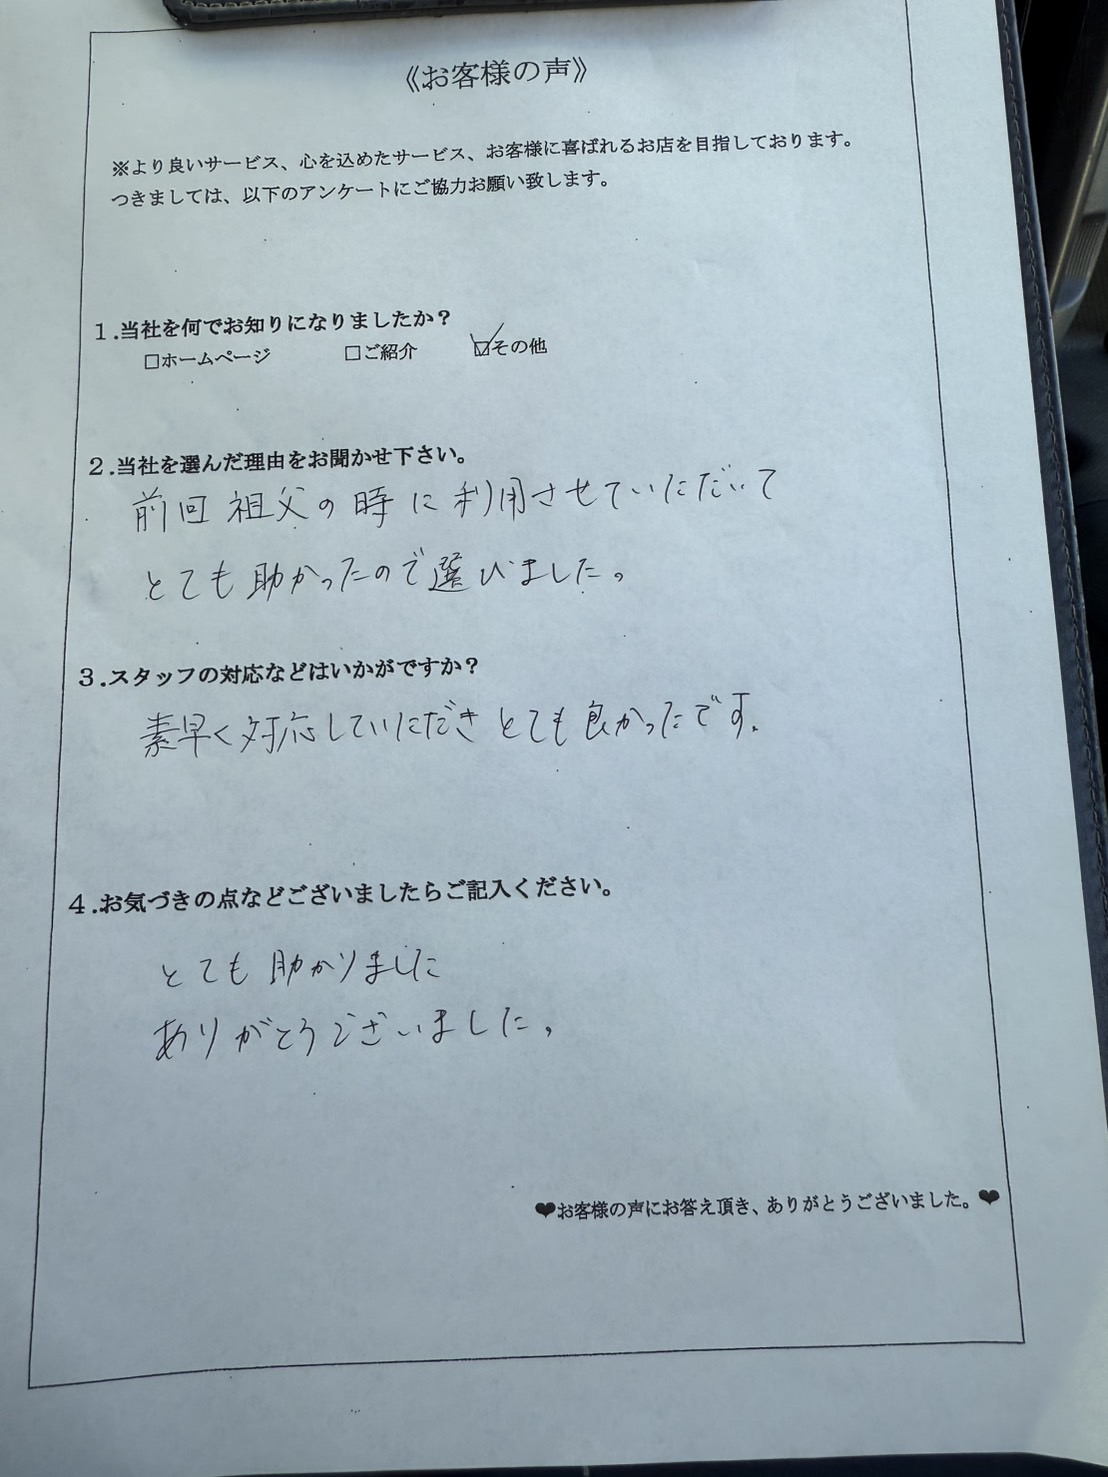 《お客様の声》
※より良いサービス、心を込めたサービス、お客様に喜ばれるお店を目指しております。
つきましては、以下のアンケートにご協力お願い致します。
1.当社を何でお知りになりましたか？
□ホームページ □ご紹介 ☑その他
2.当社を選んだ理由をお聞かせ下さい。
前回祖父の時に利用させていただいて
とても助かったので選びました。
3.スタッフの対応などはいかがですか？
素早く対応していただきとても良かったです.
4.お気づきの点などございましたらご記入ください。
とても助かりました
ありがとうございました。
❤お客様の声にお答え頂き、ありがとうございました。❤